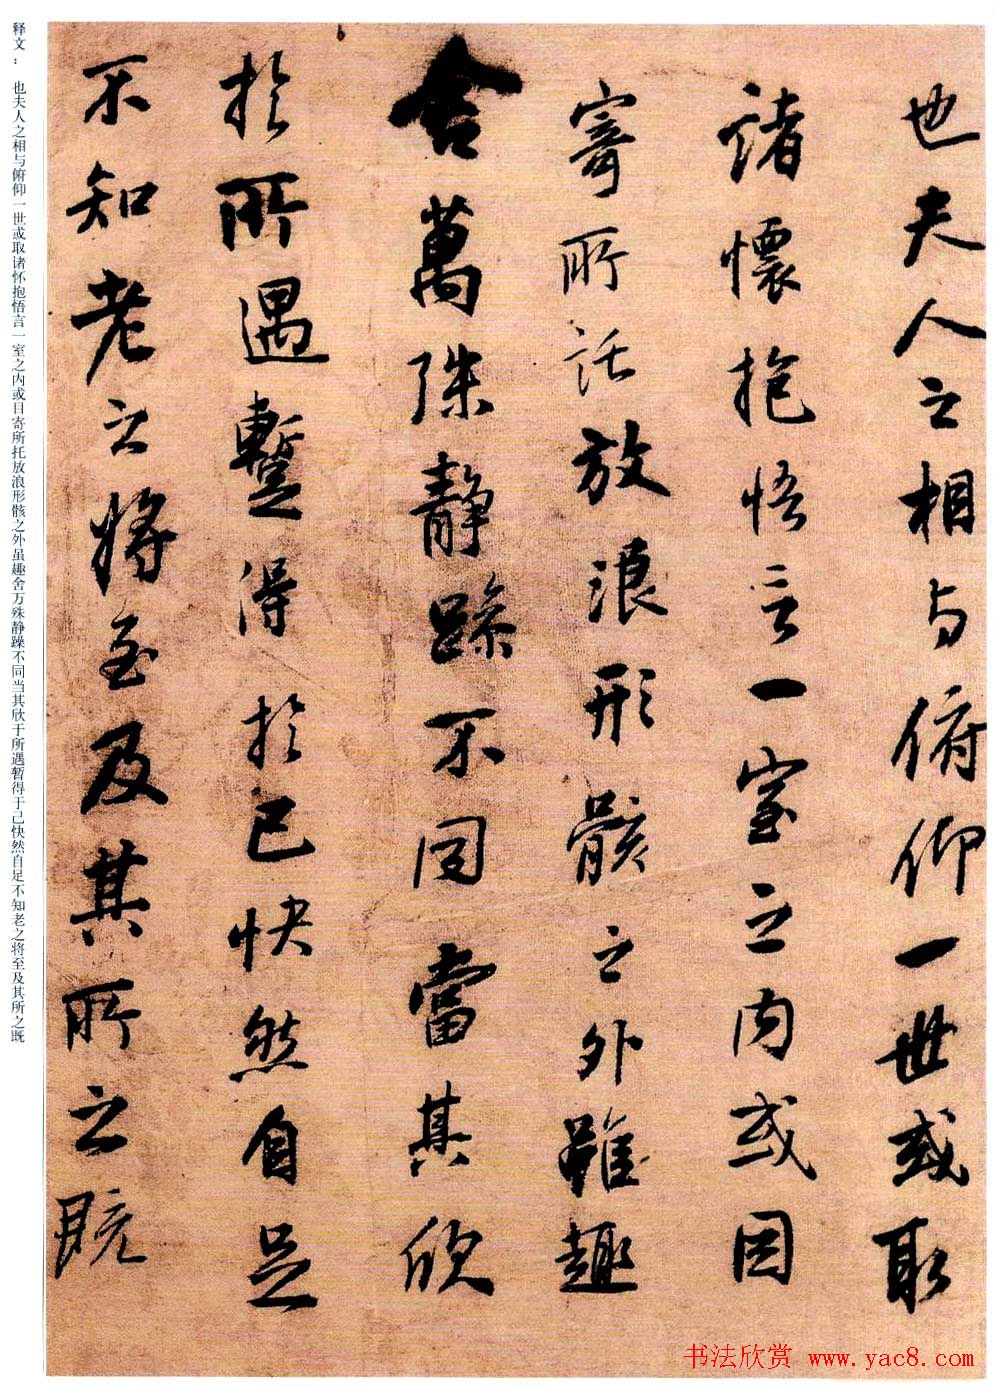 也夫人之相与俯仰一世或取
諸懷抱悟言一室之内或因
寄所託放浪形骸之外雖趣
舍萬殊静躁不同當其欣
於所遇蹔得於己快然自足
不知老之将至及其所之既
释文： 也夫人之相与俯仰一世或取诸怀抱悟言一室之内或目寄所托放浪形骸之外虽趣舍万殊静躁不同当其欣于所遇暂得于己快然自足不知老之将至及其所之既
书法欣赏 www.yac8.com